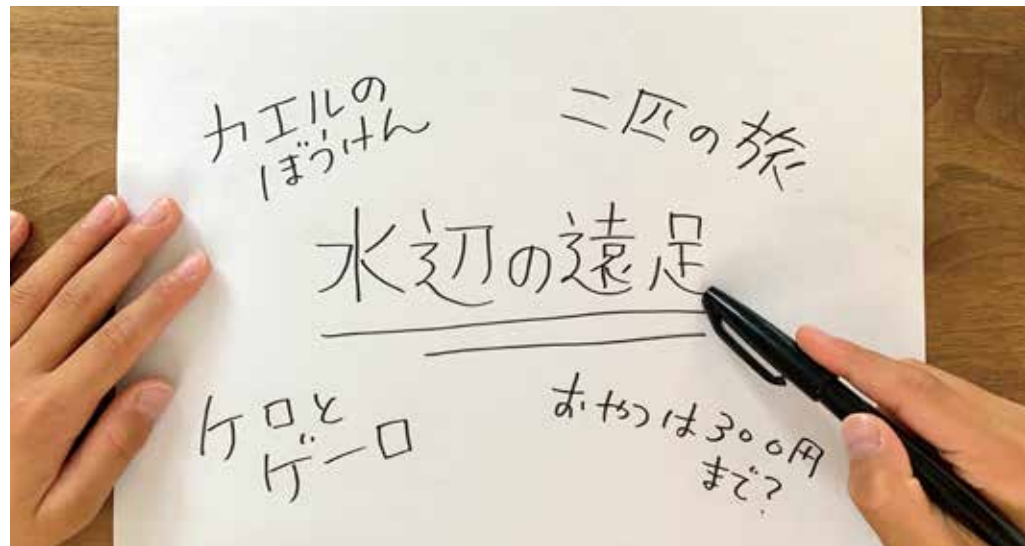 カエルの
ぼうけん
二匹の旅
水辺の遠足
ケロと
ゲーロ
おやつは300円
まで?